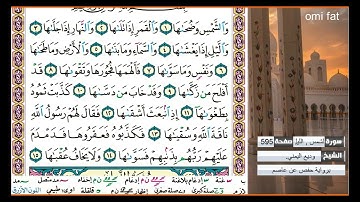 omi fat
وَالشَّمْسِ وَضُحَىٰهَا ١ وَالْقَمَرِ إِذَا تَلَىٰهَا ٢ وَالنَّهَارِ إِذَا جَلَّىٰهَا ٣
وَالَّيْلِ إِذَا يَغْشَىٰهَا ٤ وَالسَّمَآءِ وَمَا بَنَىٰهَا ٥ وَالْأَرْضِ وَمَا طَحَىٰهَا
٦ وَنَفْسٍ وَمَا سَوَّىٰهَا ٧ فَأَلْهَمَهَا فُجُورَهَا وَتَقْوَىٰهَا ٨ قَدْ
أَفْلَحَ مَن زَكَّىٰهَا ٩ وَقَدْ خَابَ مَن دَسَّىٰهَا ١٠ كَذَّبَتْ ثَمُودُ
بِطَغْوَىٰهَآ ١١ إِذِ انۢبَعَثَ أَشْقَىٰهَا ١٢ فَقَالَ لَهُمْ رَسُولُ اللَّهِ
نَاقَةَ اللَّهِ وَسُقْيَٰهَا ١٣ فَكَذَّبُوهُ فَعَقَرُوهَا فَدَمْدَمَ
عَلَيْهِمْ رَبُّهُم بِذَنۢبِهِمْ فَسَوَّىٰهَا ١٤ وَلَا يَخَافُ عُقْبَٰهَا ١٥
سورة الشمس
صفحة 595
الشيخ وديع اليمني
برواية حفص عن عاصم